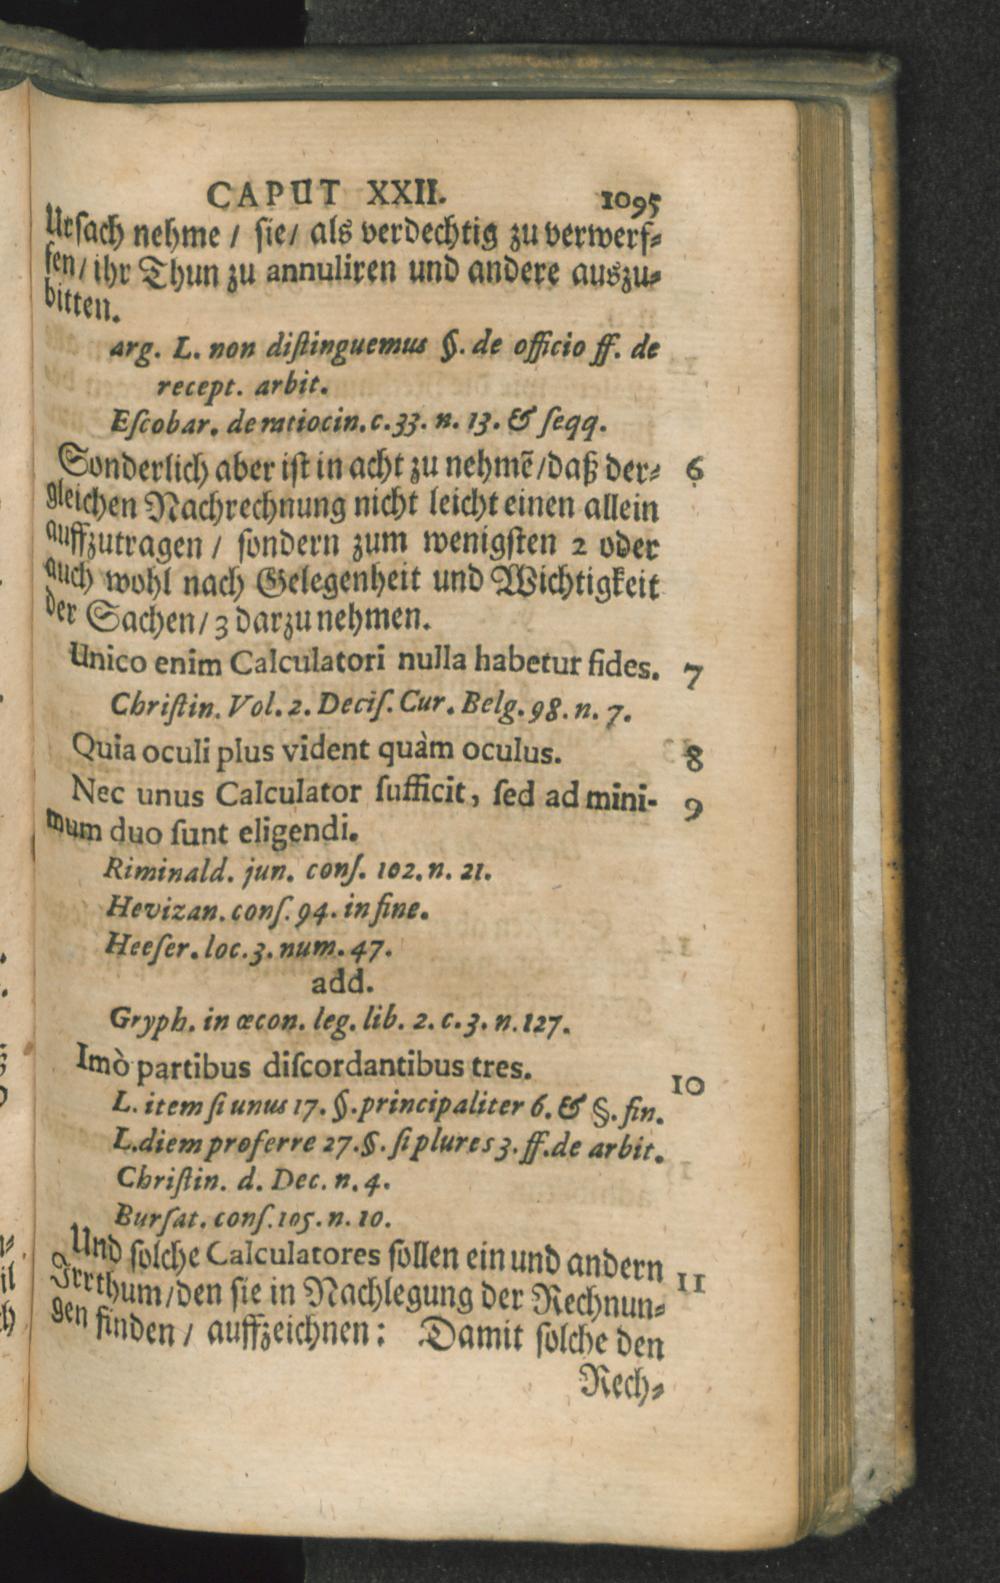 CAPUT XXII. 1095
Ursach nehme / sie / als verdechtig zu verwerf⸗
fen / ihr Thun zu annuliren und andere auszu⸗
bitten.
arg. L. non distinguemus §. de officio ff. de
recept. arbit.
Escobar. de ratiocin. c. 33. n. 13. & seqq.
Sonderlich aber ist in acht zu nehmẽ / daß der⸗ 6
gleichen Nachrechnung nicht leicht einen allein
auffzutragen / sondern zum wenigsten 2 oder
auch wohl nach Gelegenheit und Wichtigkeit
der Sachen / 3 darzu nehmen.
Unico enim Calculatori nulla habetur fides. 7
Christin. Vol. 2. Decis. Cur. Belg. 98. n. 7.
Quia oculi plus vident quàm oculus. 8
Nec unus Calculator sufficit, sed ad mini- 9
mum duo sunt eligendi.
Riminald. jun. cons. 102. n. 21.
Hevizan. cons. 94. in fine.
Heeser. loc. 3. num. 47.
add.
Gryph. in œcon. leg. lib. 2. c. 3. n. 127.
Imò partibus discordantibus tres. 10
L. item si unus 17. §. principaliter 6. & §. fin.
L. diem proferre 27. §. si plures 3. ff. de arbit.
Christin. d. Dec. n. 4.
Bursat. cons. 105. n. 10.
Und solche Calculatores sollen ein und andern 11
Irrthum / den sie in Nachlegung der Rechnun⸗
gen finden / auffzeichnen: Damit solche den
Rech⸗